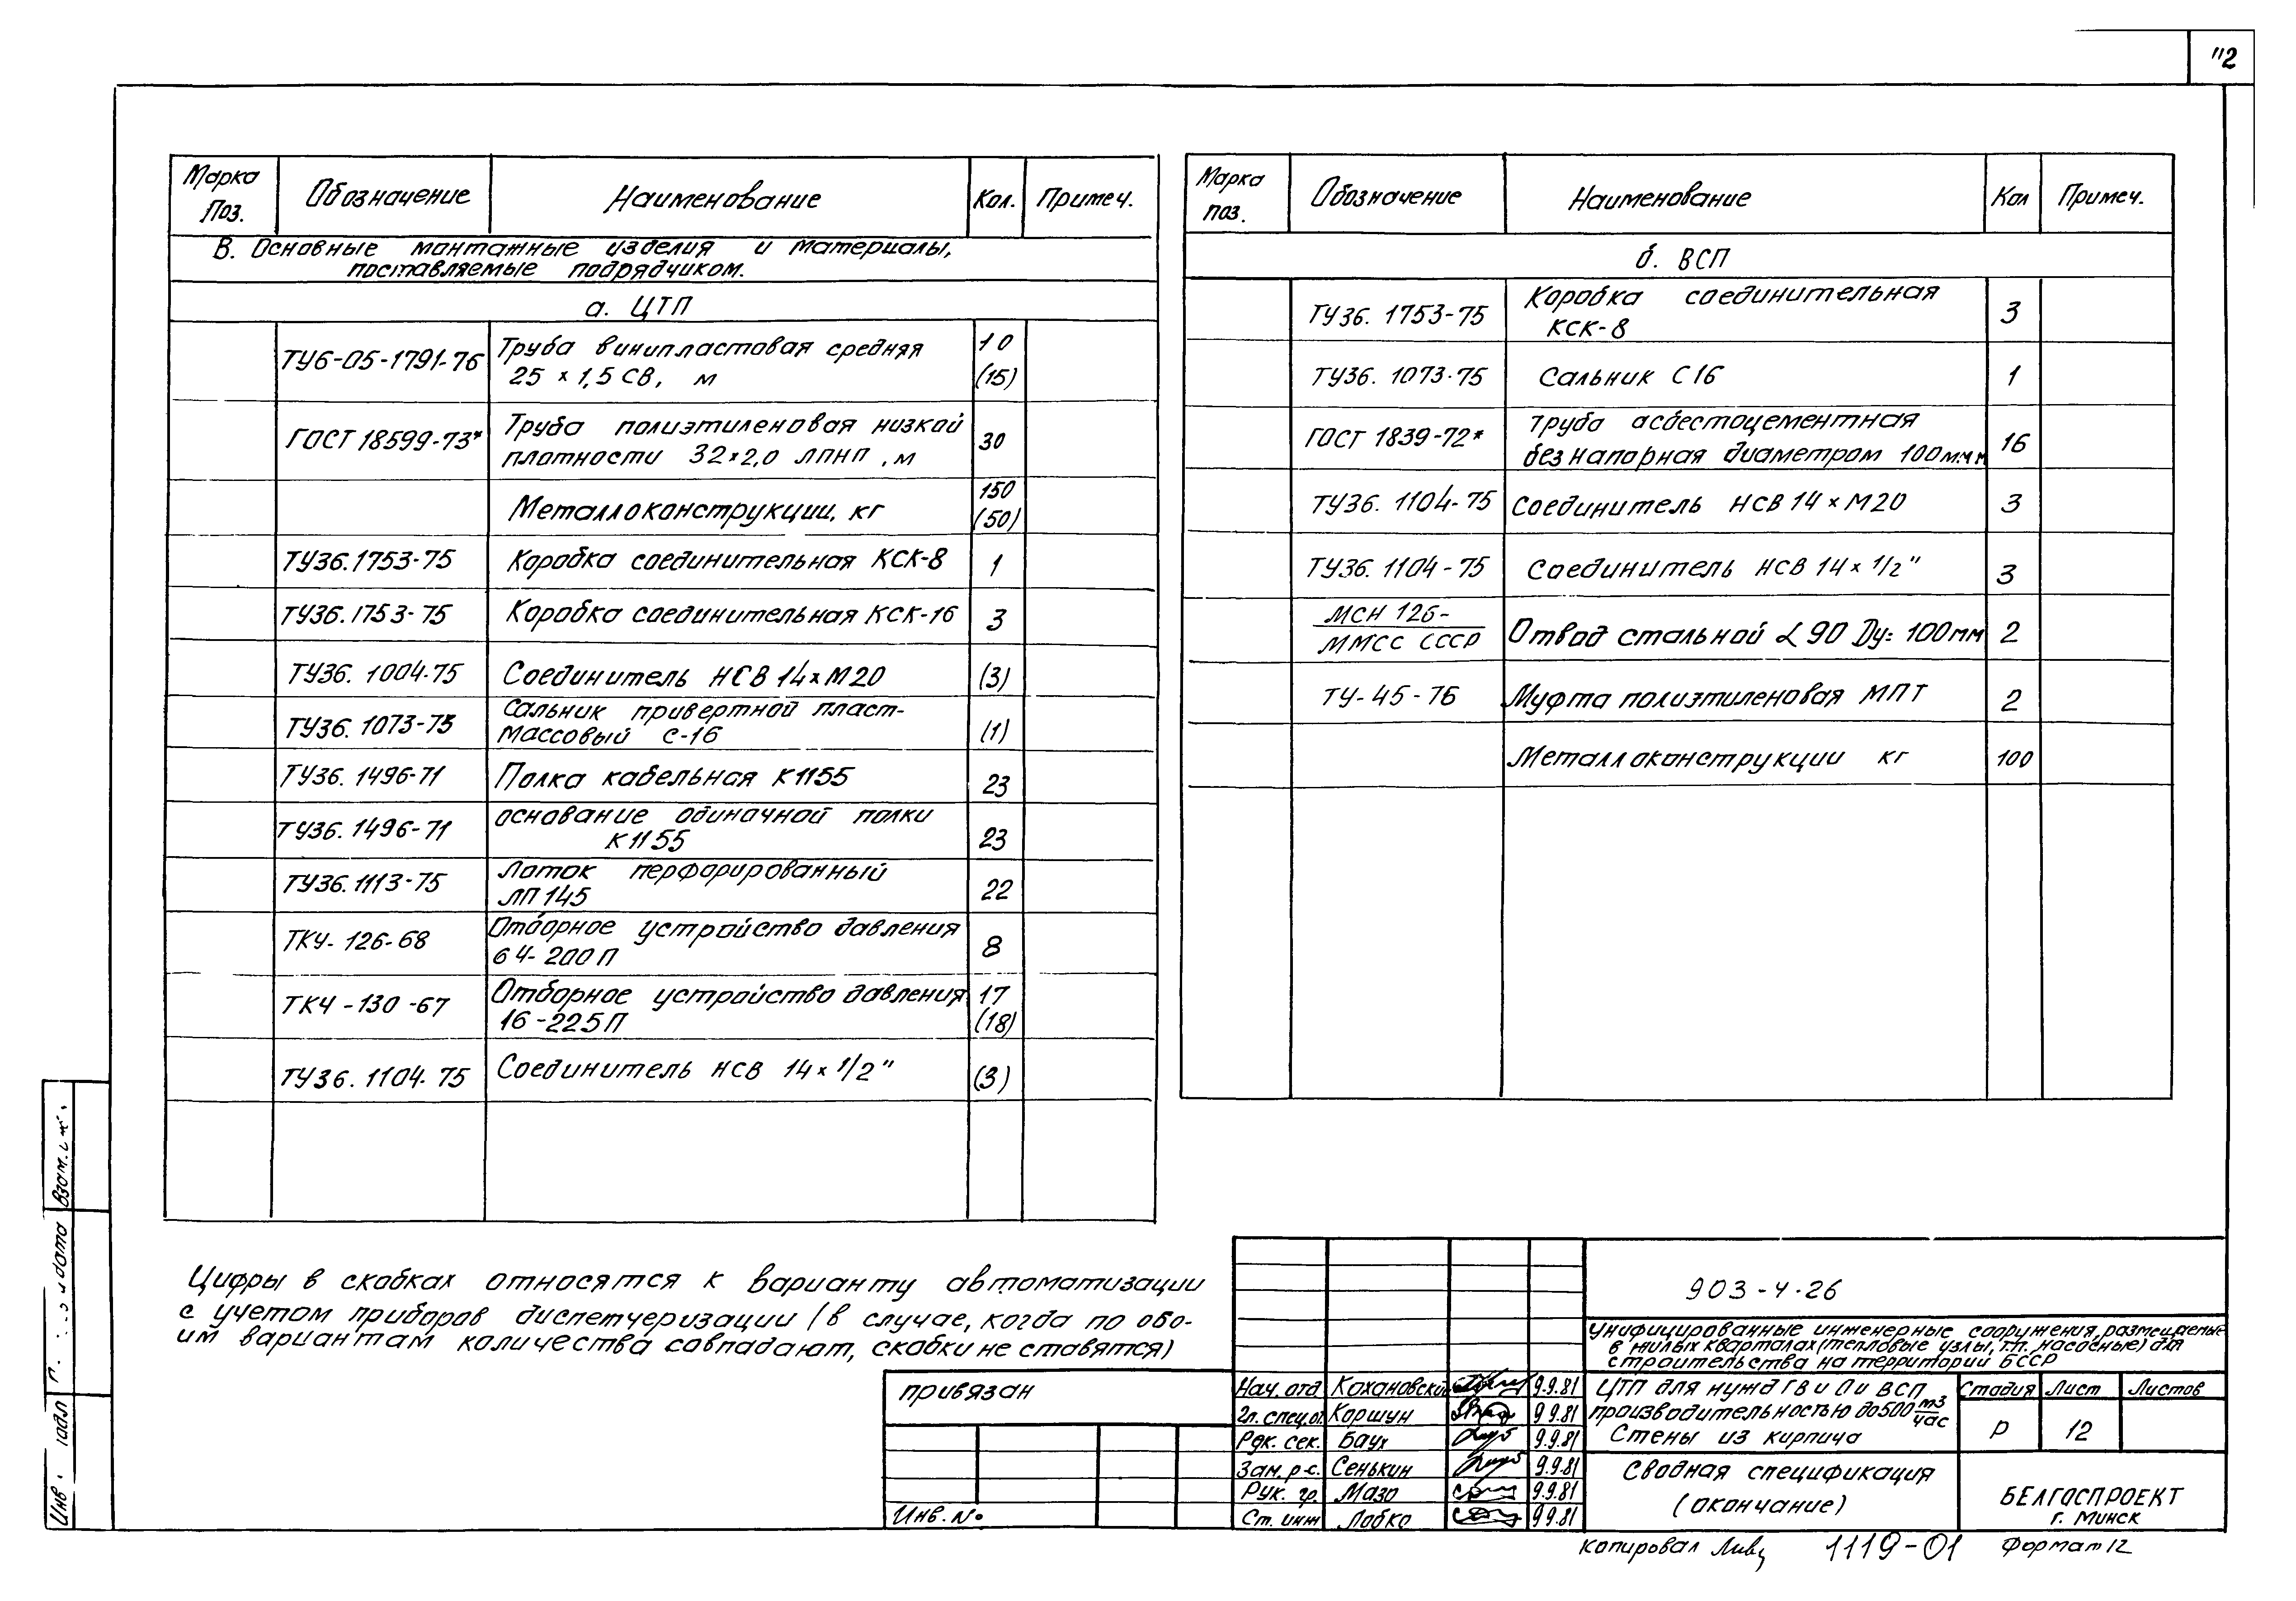 "2
Марка Поз. Обозначение Наименование Кол. Примеч.
В. Основные монтажные изделия и материалы,
поставляемые подрядчиком.
а. ЦТП
ТУ6-05-1791-76 Труба винипластовая средняя 10
25 × 1,5 СВ, м (15)
ГОСТ 18599-73* Труба полиэтиленовая низкой 30
плотности 32×2,0 ЛПНП, м
Металлоконструкции, кг 150
(50)
ТУ36.1753-75 Коробка соединительная КСК-8 1
ТУ36.1753-75 Коробка соединительная КСК-16 3
ТУ36. 1004-75 Соединитель НСВ 14×М20 (3)
ТУ36. 1073-75 Сальник привертной пласт-
массовый С-16 (1)
ТУ36. 1496-71 Полка кабельная К1155 23
ТУ36. 1496-71 основание одиночной полки
К1155 23
ТУ36.1113-75 Лоток перфорированный
ЛП 145 22
ТКЧ-126-68 Отборное устройство давления
64-200П 8
ТКЧ-130-67 Отборное устройство давления 17
16-225П (18)
ТУ36.1104-75 Соединитель НСВ 14 × 1/2" (3)
Марка поз. Обозначение Наименование Кол Примеч.
б. ВСП
ТУ36. 1753-75 Коробка соединительная
КСК-8 3
ТУ36. 1073-75 Сальник С16 1
ГОСТ 1839-72* труба асбестоцементная
безнапорная диаметром 100мм,м 16
ТУ36. 1104-75 Соединитель НСВ 14 × М20 3
ТУ36. 1104-75 Соединитель НСВ 14 × 1/2" 3
МСН 126-
ММСС СССР Отвод стальной L 90 Ду= 100мм 2
ТУ-45-76 Муфта полиэтиленовая МПТ 2
Металлоконструкции кг 100
Цифры в скобках относятся к варианту автоматизации
с учетом приборов диспетчеризации (в случае, когда по обо-
им вариантам количества совпадают, скобки не ставятся)
привязан
Инв. №
Нач. отд Кохановский 9.9.81
Гл. спец.от. Коршун 9.9.81
Рук. сек. Баух 9.9.81
Зам. р-с. Сенькин 9.9.81
Рук. гр. Мазо 9.9.81
Ст. инж Лобко 9.9.81
903-4-26
Унифицированные инженерные сооружения, размещаемые
в жилых кварталах (тепловые узлы, т.п. насосные) для
строительства на территории БССР
ЦТП для нужд ГВ и О и ВСП
производительностью до500 м3/час
Стены из кирпича
Стадия Лист Листов
Р 12
Сводная спецификация
(окончание)
БЕЛГОСПРОЕКТ
г. Минск
копировал 1119-01 Формат 12
Взам.
и дата
Инв. подл